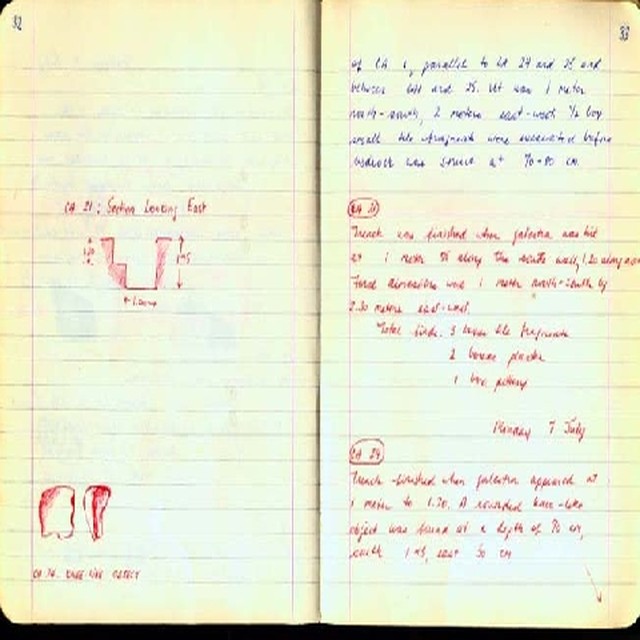 32
CA 21: Section Looking East
1.20
1.45
1.00m
CA 24. KNEE-LIKE OBJECT
33
of CA 6, parallel to CA 24 and 25 and
between and 25. It was 1 meter
north-south, 2 meters east-west. 1/2 box
small tile fragments were excavated before
bedrock was struck at 70-80 cm.
CA 21
Trench was finished when galestra was hit
at 1 meter along the south wall, 1.20 along
dimensions were 1 meter north-south by
2.30 meters east-west.
Total finds: 3 boxes tile fragments
2 boxes plaster
1 box pottery
Monday 7 July
CA 24
Trench finished when galestra appeared at
1 meter to 1.20. A rounded knee-like
object was found at a depth of 70 cm,
south 1 m, east 50 cm